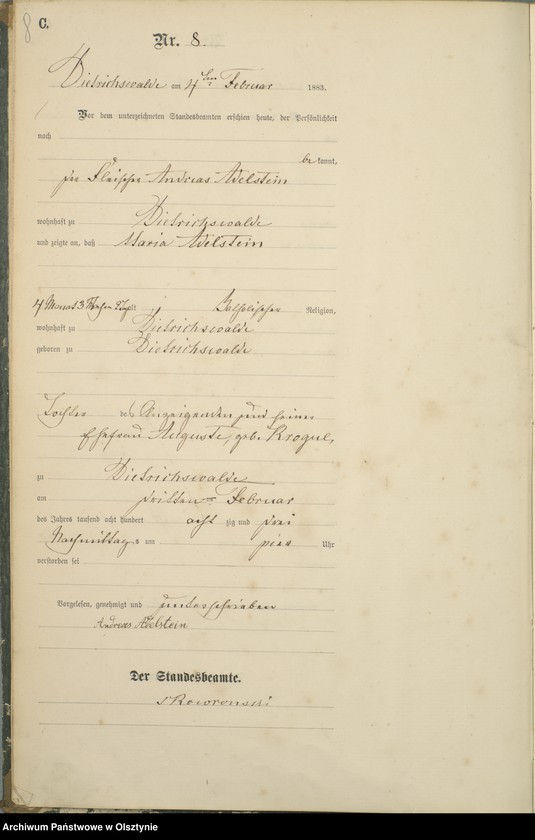 8
C.
Nr. 8.
Dietrichswalde am 4ten Februar 1883.
Vor dem unterzeichneten Standesbeamten erschien heute, der Persönlichkeit
nach
be kannt,
der Fleischer Andreas Adelstein
wohnhaft zu Dietrichswalde
und zeigte an, daß Maria Adelstein
4 Monat 3 Wochen 2 Tag alt Katholischer Religion,
wohnhaft zu Dietrichswalde
geboren zu Dietrichswalde
Tochter des Anzeigenden und seiner
Ehefrau Auguste, geb.
zu Dietrichswalde
am dritten Februar
des Jahres tausend acht hundert acht zig und drei
Nachmittag s um vier Uhr
verstorben sei
Vorgelesen, genehmigt und unterschrieben
Andreas Adelstein
Der Standesbeamte.
Skowronski
Archiwum Państwowe w Olsztynie